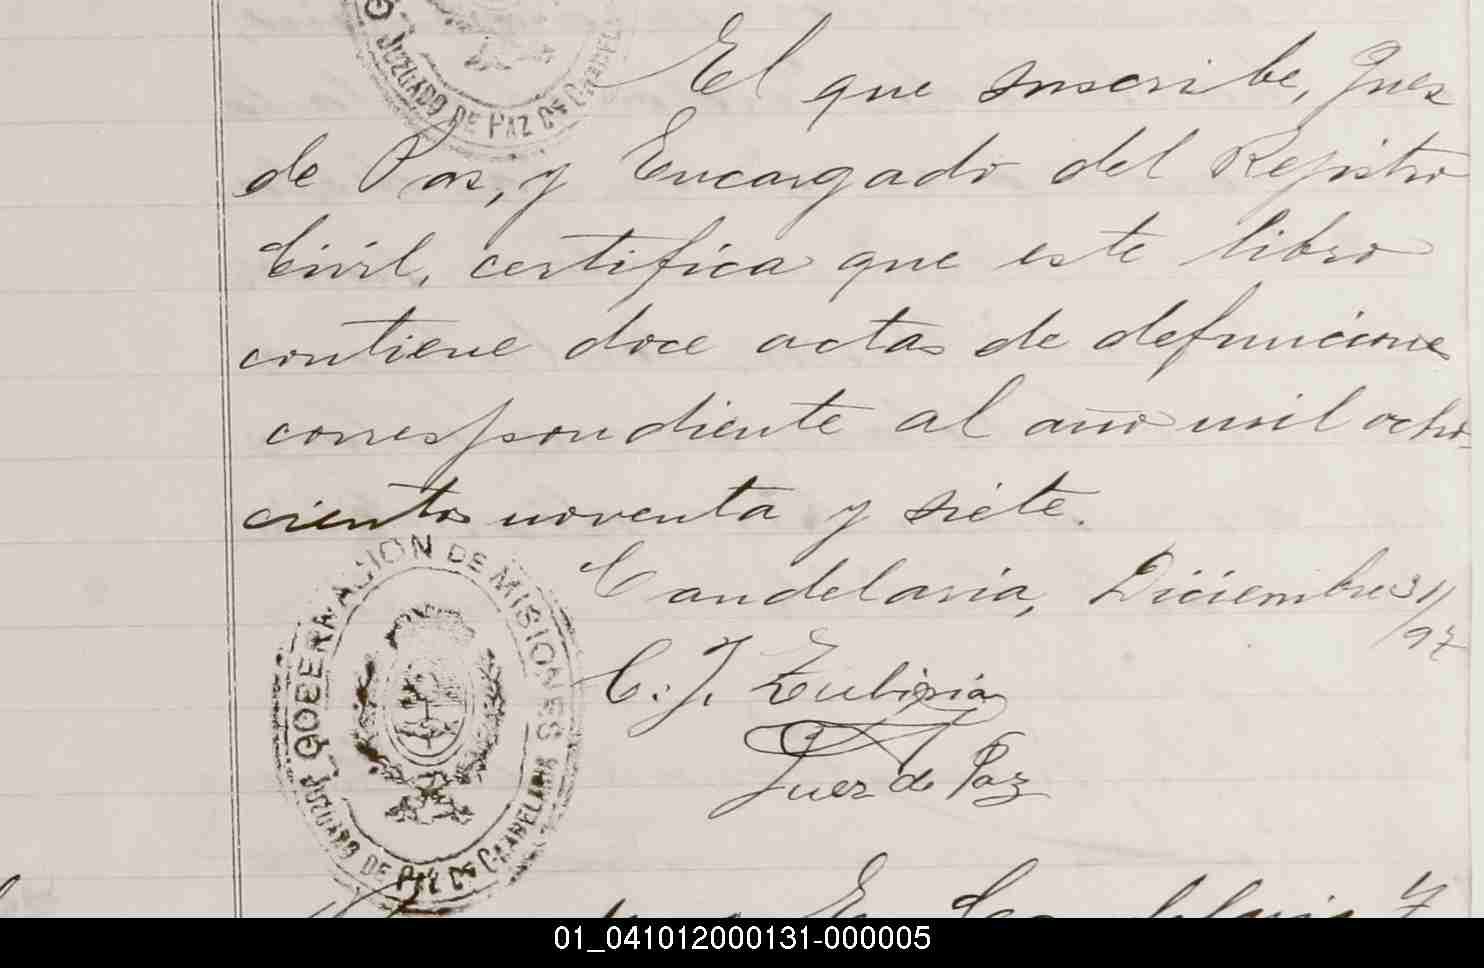 JUZGADO DE PAZ DE CANDEL
El que suscribe, Juez
de Pas, y Encargado del Rejistro
Civil, certifica que este libro
contiene doce actas de defunciones
correspondiente al año mil ocho-
cientos noventa y siete.
Candelaria, Diciembre 31/
/97
C. J. Zubiria
Juez de Paz
GOBERNACION DE MISIONES
JUZGADO DE PAZ DE CANDELARIA
01_041012000131-000005